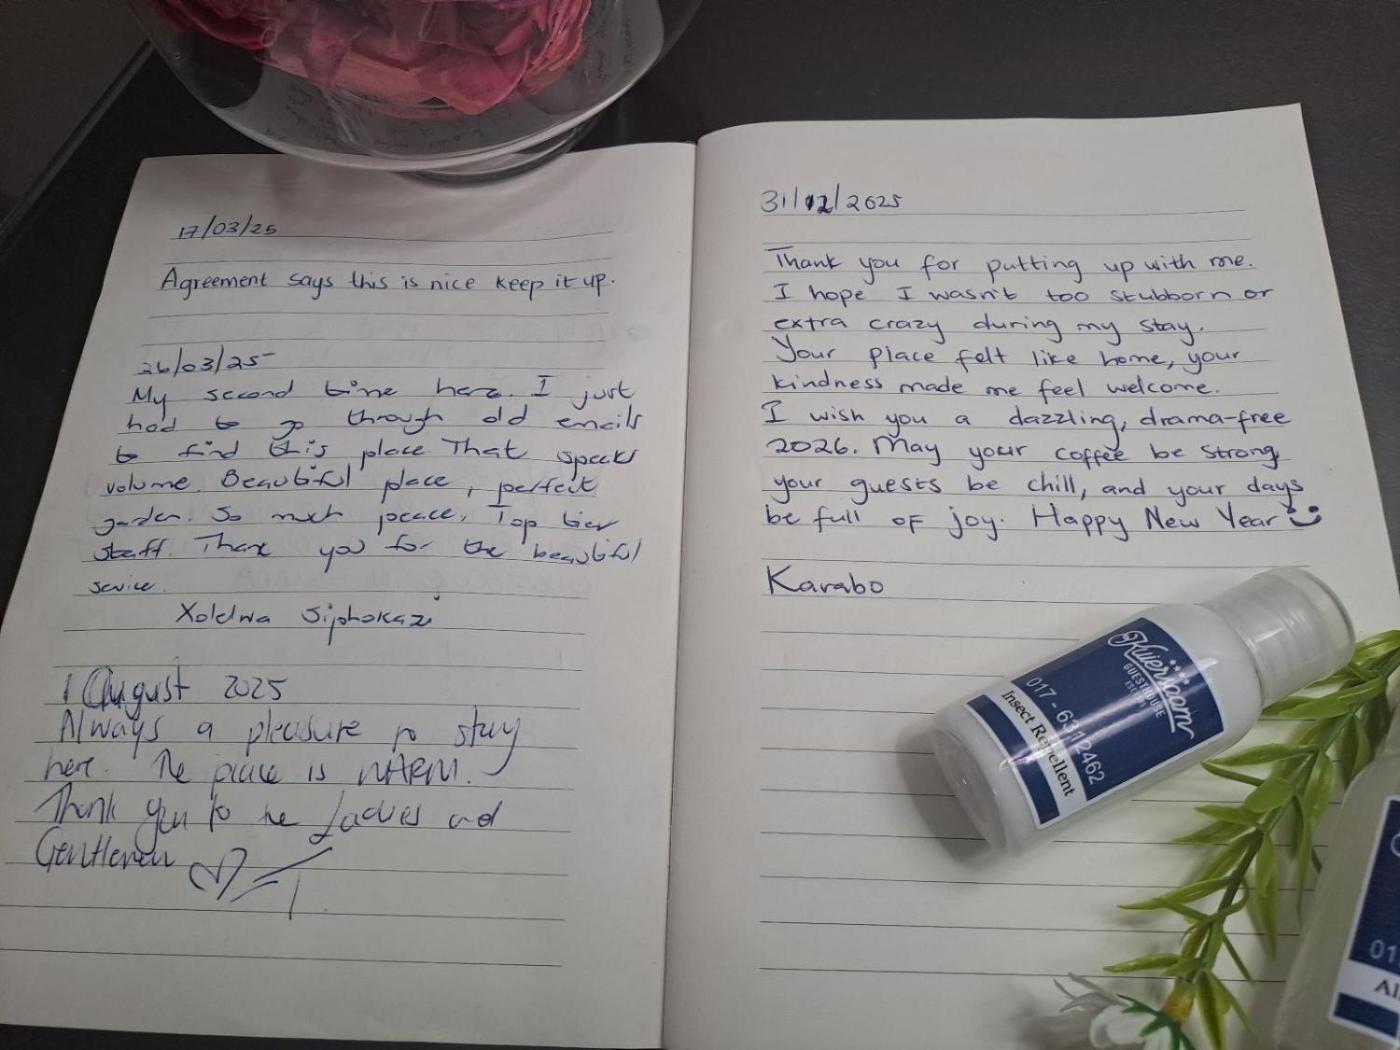 17/03/25
Agreement says this is nice keep it up.
26/03/25
My second time here. I just
had to go through old emails
to find this place. That speaks
volume. Beautiful place, perfect
garden. So much peace. Top tier
staff. Thank you for the beautiful
service.
Siphokazi
1 August 2025
Always a pleasure to stay
here. The place is WARM.
Thank you to the Ladies and
Gentlemen
31/12/2025
Thank you for putting up with me.
I hope I wasn't too stubborn or
extra crazy during my stay.
Your place felt like home, your
kindness made me feel welcome.
I wish you a dazzling, drama-free
2026. May your coffee be strong,
your guests be chill, and your days
be full of joy. Happy New Year
Karabo
Kuierjaam
GUESTHOUSE
017 - 6312462
Insect Repellent